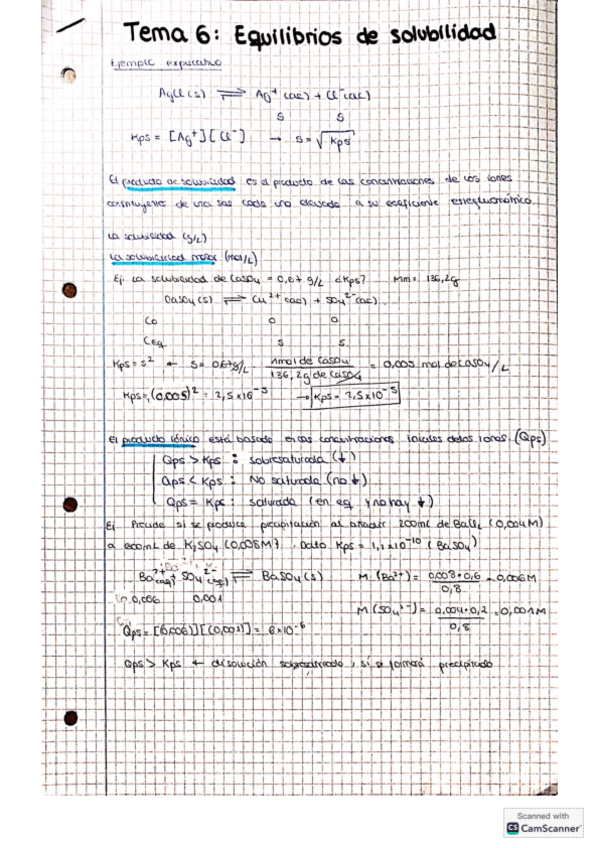 Tema 6: Equilibrios de solubilidad
Ejemplo explicativo
AgCl(s) ⇌ Ag⁺(ac) + Cl⁻(ac)
s s
Kps = [Ag⁺][Cl⁻] → s = √Kps
El producto de solubilidad es el producto de las concentraciones de los iones
constituyentes de una sal cada uno elevada a su coeficiente estequiométrico.
La solubilidad (g/L)
La solubilidad molar (mol/L)
Ej: La solubilidad de CaSO₄ = 0,67 g/L ¿Kps? Mm = 136,2g
CaSO₄(s) ⇌ Cu²⁺(ac) + SO₄²⁻(ac)
Co 0 0
Ceq s s
Kps = s² ← s = 0,67g/L · 1mol de CaSO₄ / 136,2g de CaSO₄ = 0,005 mol de CaSO₄/L
Kps = (0,005)² = 2,5x10⁻⁵ → Kps = 2,5x10⁻⁵
El producto iónico está basado en las concentraciones iniciales de los iones. (Qps)
Qps > Kps : sobresaturada (↓)
Qps < Kps : No saturada (no ↓)
Qps = Kps : saturada (en eq y no hay ↓)
Ej. Precude si se produce precipitación al añadir 200mL de BaCl₂ (0,004M)
a 600mL de K₂SO₄ (0,008M), Kps = 1,1x10⁻¹⁰ (BaSO₄)
Ba²⁺(aq) + SO₄²⁻(aq) ⇌ BaSO₄(s) M(Ba²⁺) = 0,008·0,6 / 0,8 = 0,006M
Co 0,006 0,001
M(SO₄²⁻) = 0,004·0,2 / 0,8 = 0,001M
Qps = [(0,006)][(0,001)] = 6x10⁻⁶
Qps > Kps ← disolución sobresaturado, sí se formará precipitado
Scanned with
CS CamScanner